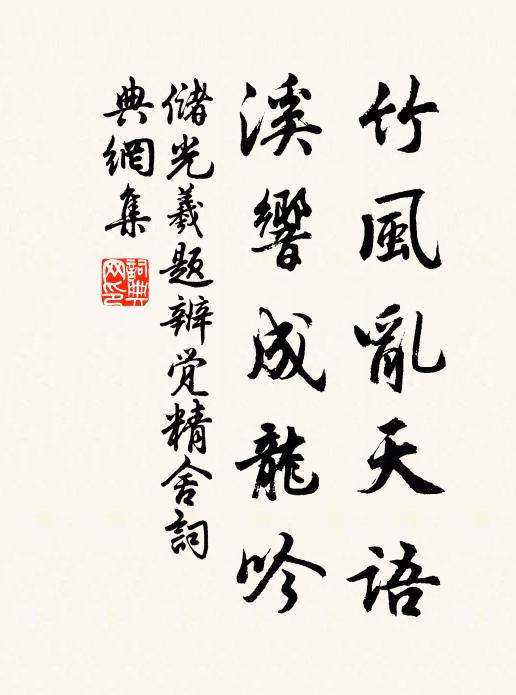 竹風亂天語
溪響成龍吟
儲光羲題辨觉精舍詞
典網集
詞典网印